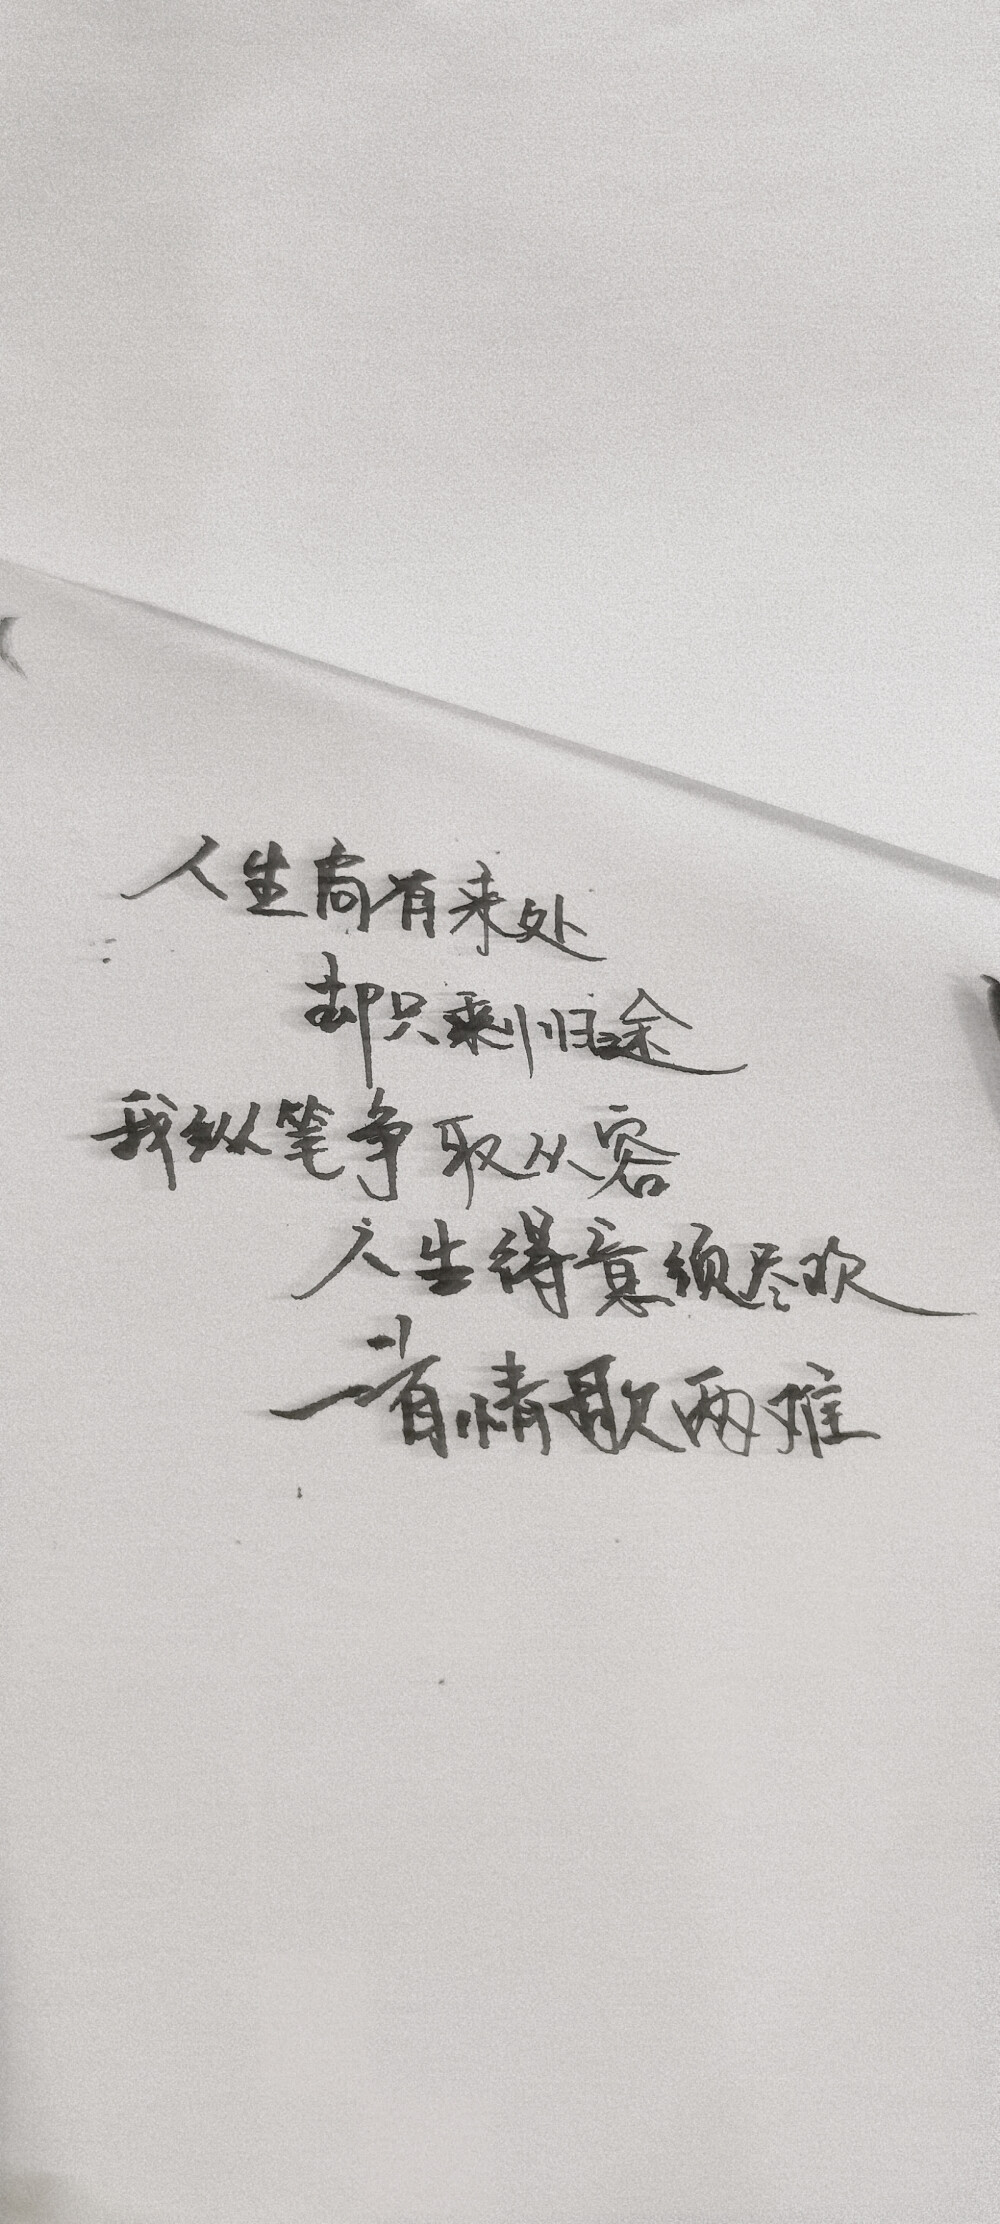 人生尚有来处
却只剩归途
我纵笔争取从容
人生得意须尽欢
一首情歌两难